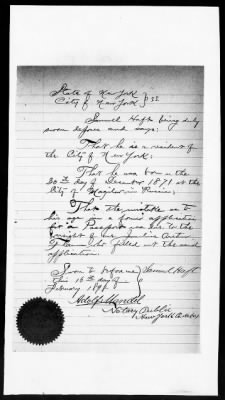 State of New York
City of New York } ss.
Samuel Haft being duly
sworn deposes and says:
That he is a resident of
the City of New York;
That he was born on the
20th day of December 1871 at the
City of in Russia;
That the mistake as to
his age in a former application
for a Passport was due to the
of one
who filled out the said
application.
Sworn to before me } Samuel Haft
this 16th day of
February 189
Adolf Mandel
Notary Public
New York